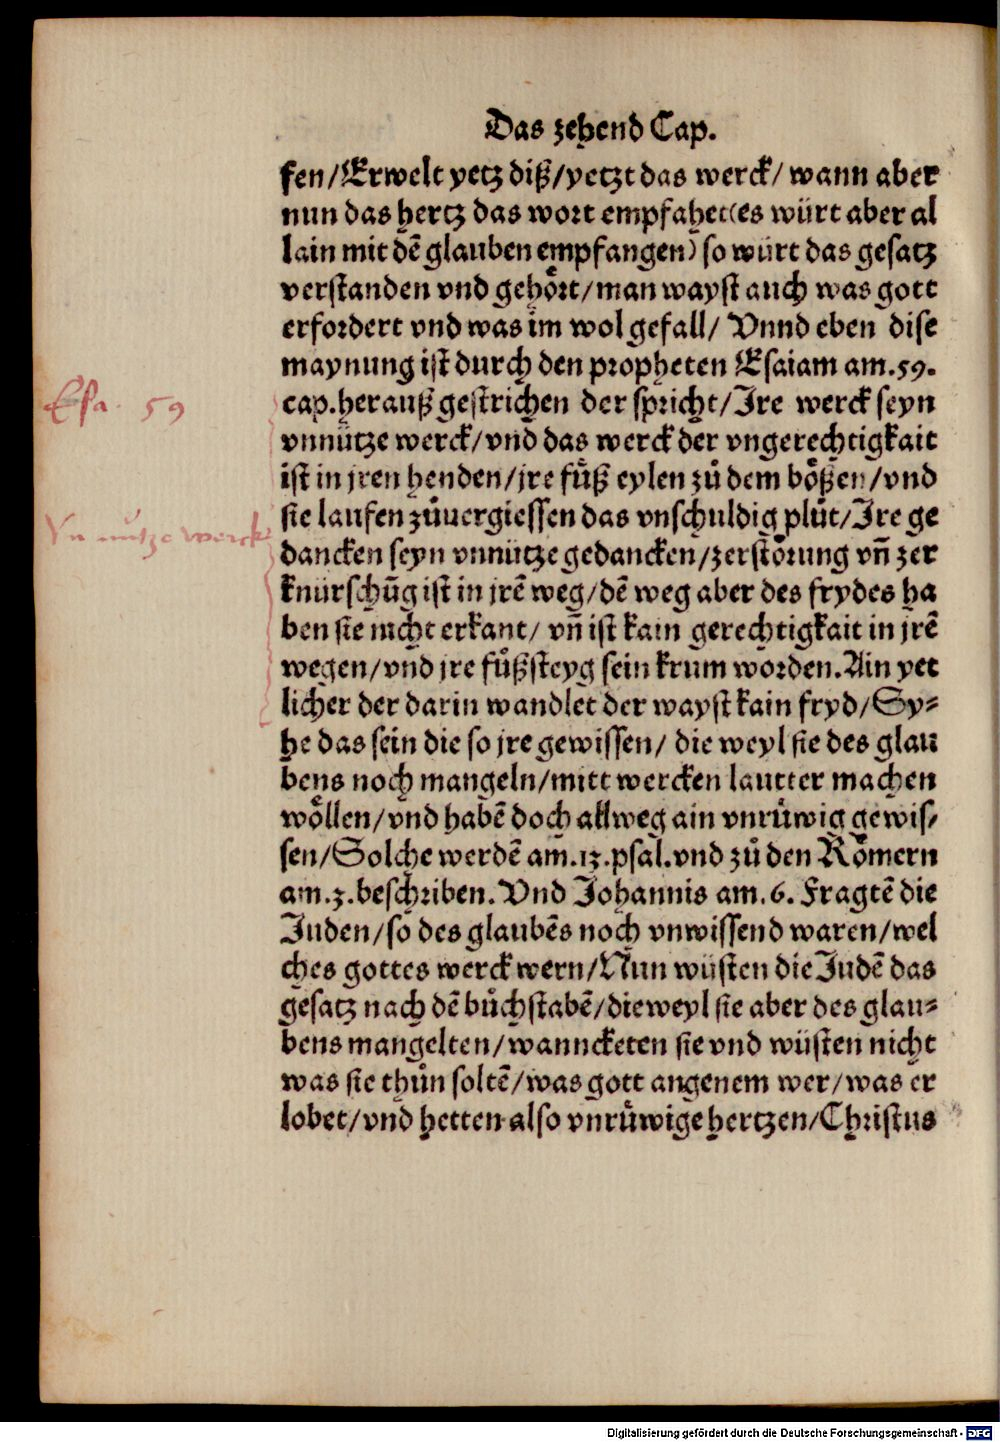 Das zehend Cap.
fen/Erwelt yetz diß/yetzt das werck/ wann aber
nun das hertz das wort empfahet(es würt aber al
lain mit dē glauben empfangen) so würt das gesatz
verstanden vnd gehört/man wayst auch was gott
erfordert vnd was im wol gefall/ Vnnd eben dise
maynung ist durch den propheten Esaiam am.59.
Esa. 59
cap.herauß gestrichen der spricht/Ire werck seyn
vnnütze werck/vnd das werck der vngerechtigkait
ist in jren henden/jre fůß eylen zů dem bößen/vnd
sie laufen zůuergiessen das vnschuldig plůt/Ire ge
Vnnütze werck
dancken seyn vnnütze gedancken/zerstörung vn̄ zer
knürschūg ist in jrē weg/dē weg aber des frydes ha
ben sie nicht erkant/ vn̄ ist kain gerechtigkait in jrē
wegen/vnd jre fůßsteyg sein krum worden.Ain yet
licher der darin wandlet der wayst kain fryd/Sy⸗
he das sein die so jre gewissen/ die weyl sie des glau
bens noch mangeln/mitt wercken lautter machen
wöllen/vnd habē doch allweg ain vnrůwig gewis⸗
sen/Solche werdē am.13.psal.vnd zů den Römern
am.3.beschriben.Vnd Johannis am.6.Fragtē die
Juden/so des glaubēs noch vnwissend waren/wel
ches gottes werck wern/Nun wüsten die Judē das
gesatz nach dē bůchstabē/dieweyl sie aber des glau⸗
bens mangelten/wanncketen sie vnd wüsten nicht
was sie thůn soltē/was gott angenem wer/was er
lobet/vnd hetten also vnrůwige hertzen/Christus
Digitalisierung gefördert durch die Deutsche Forschungsgemeinschaft - DFG